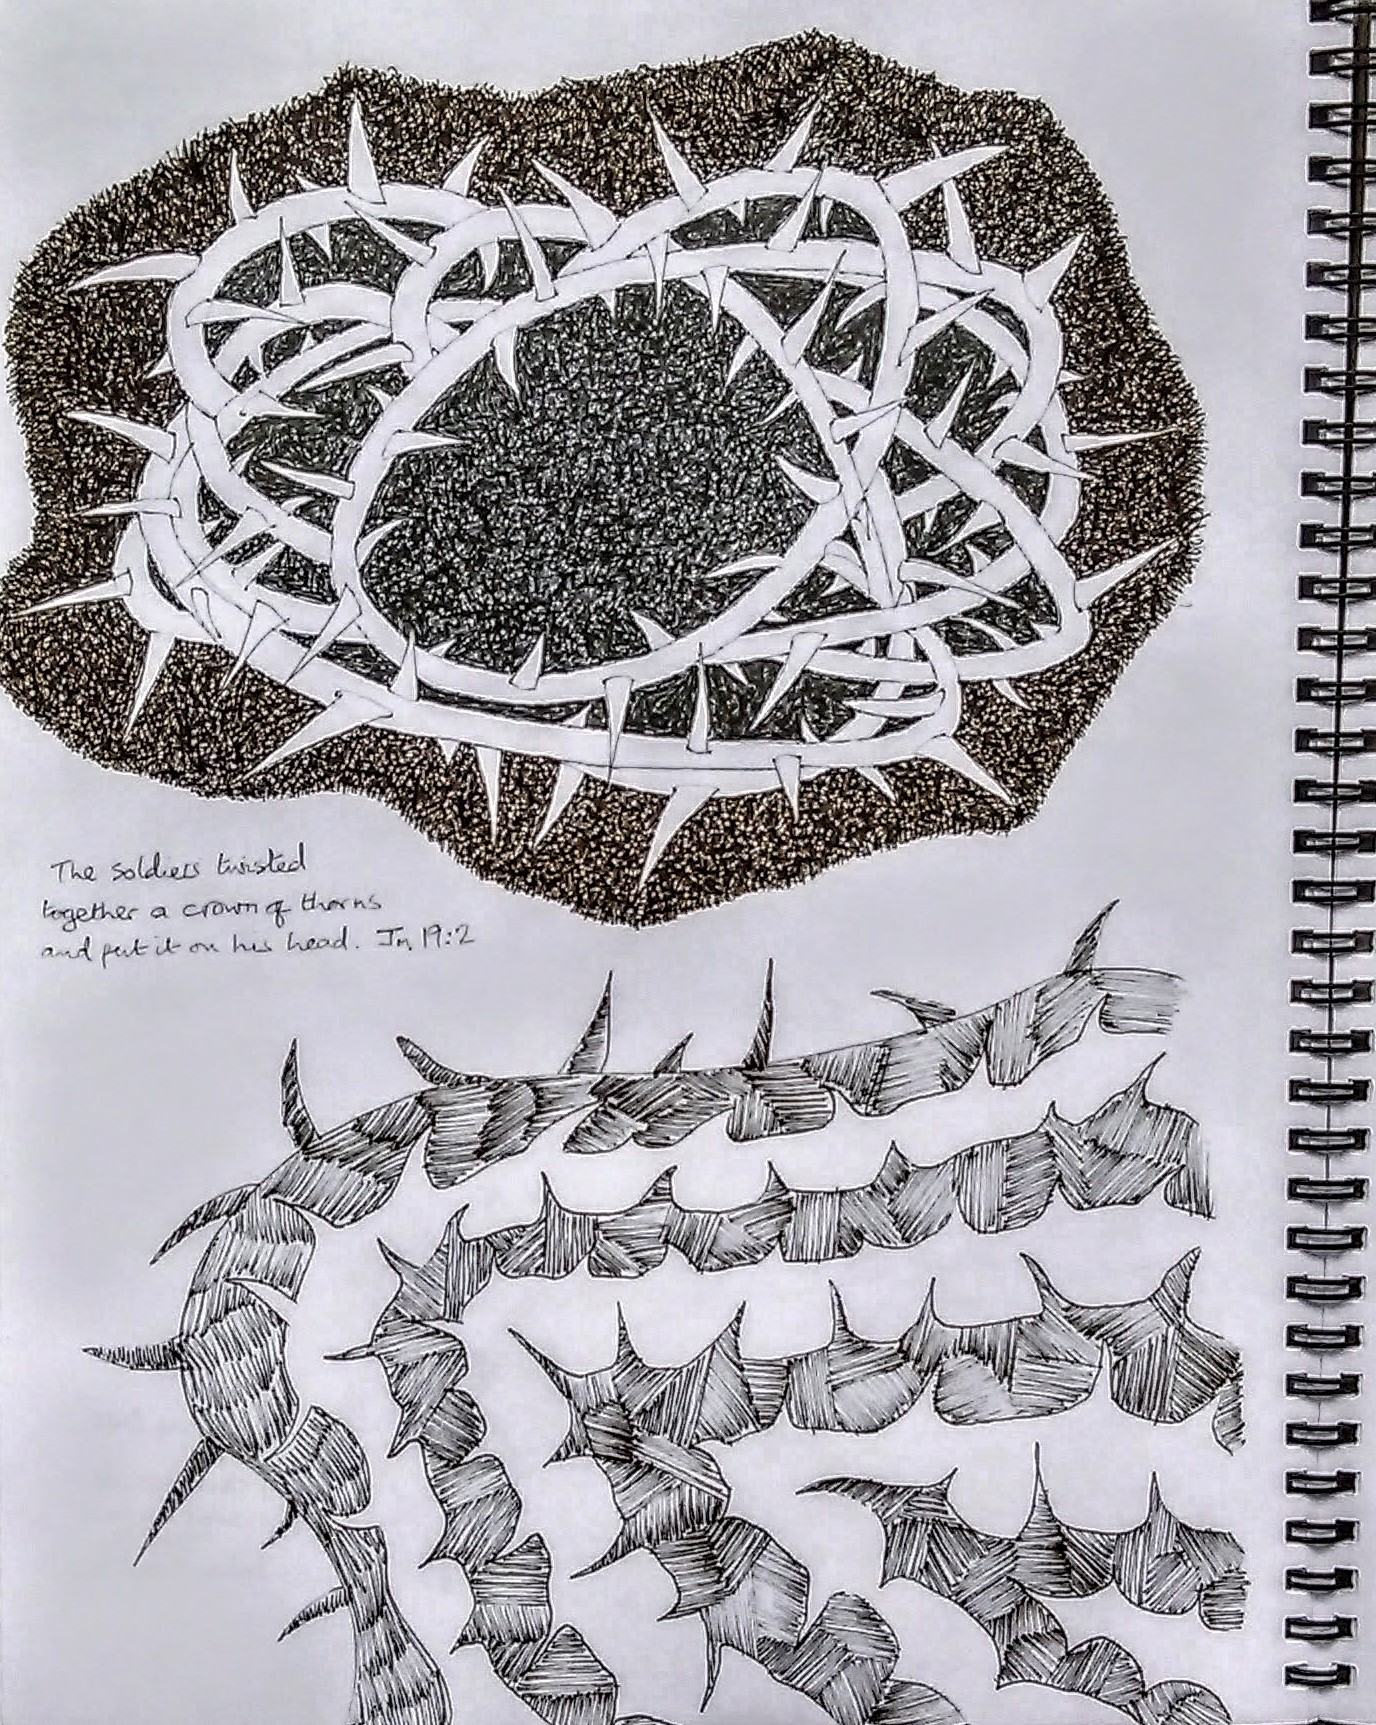 The soldiers twisted
together a crown of thorns
and put it on his head. Jn 19:2